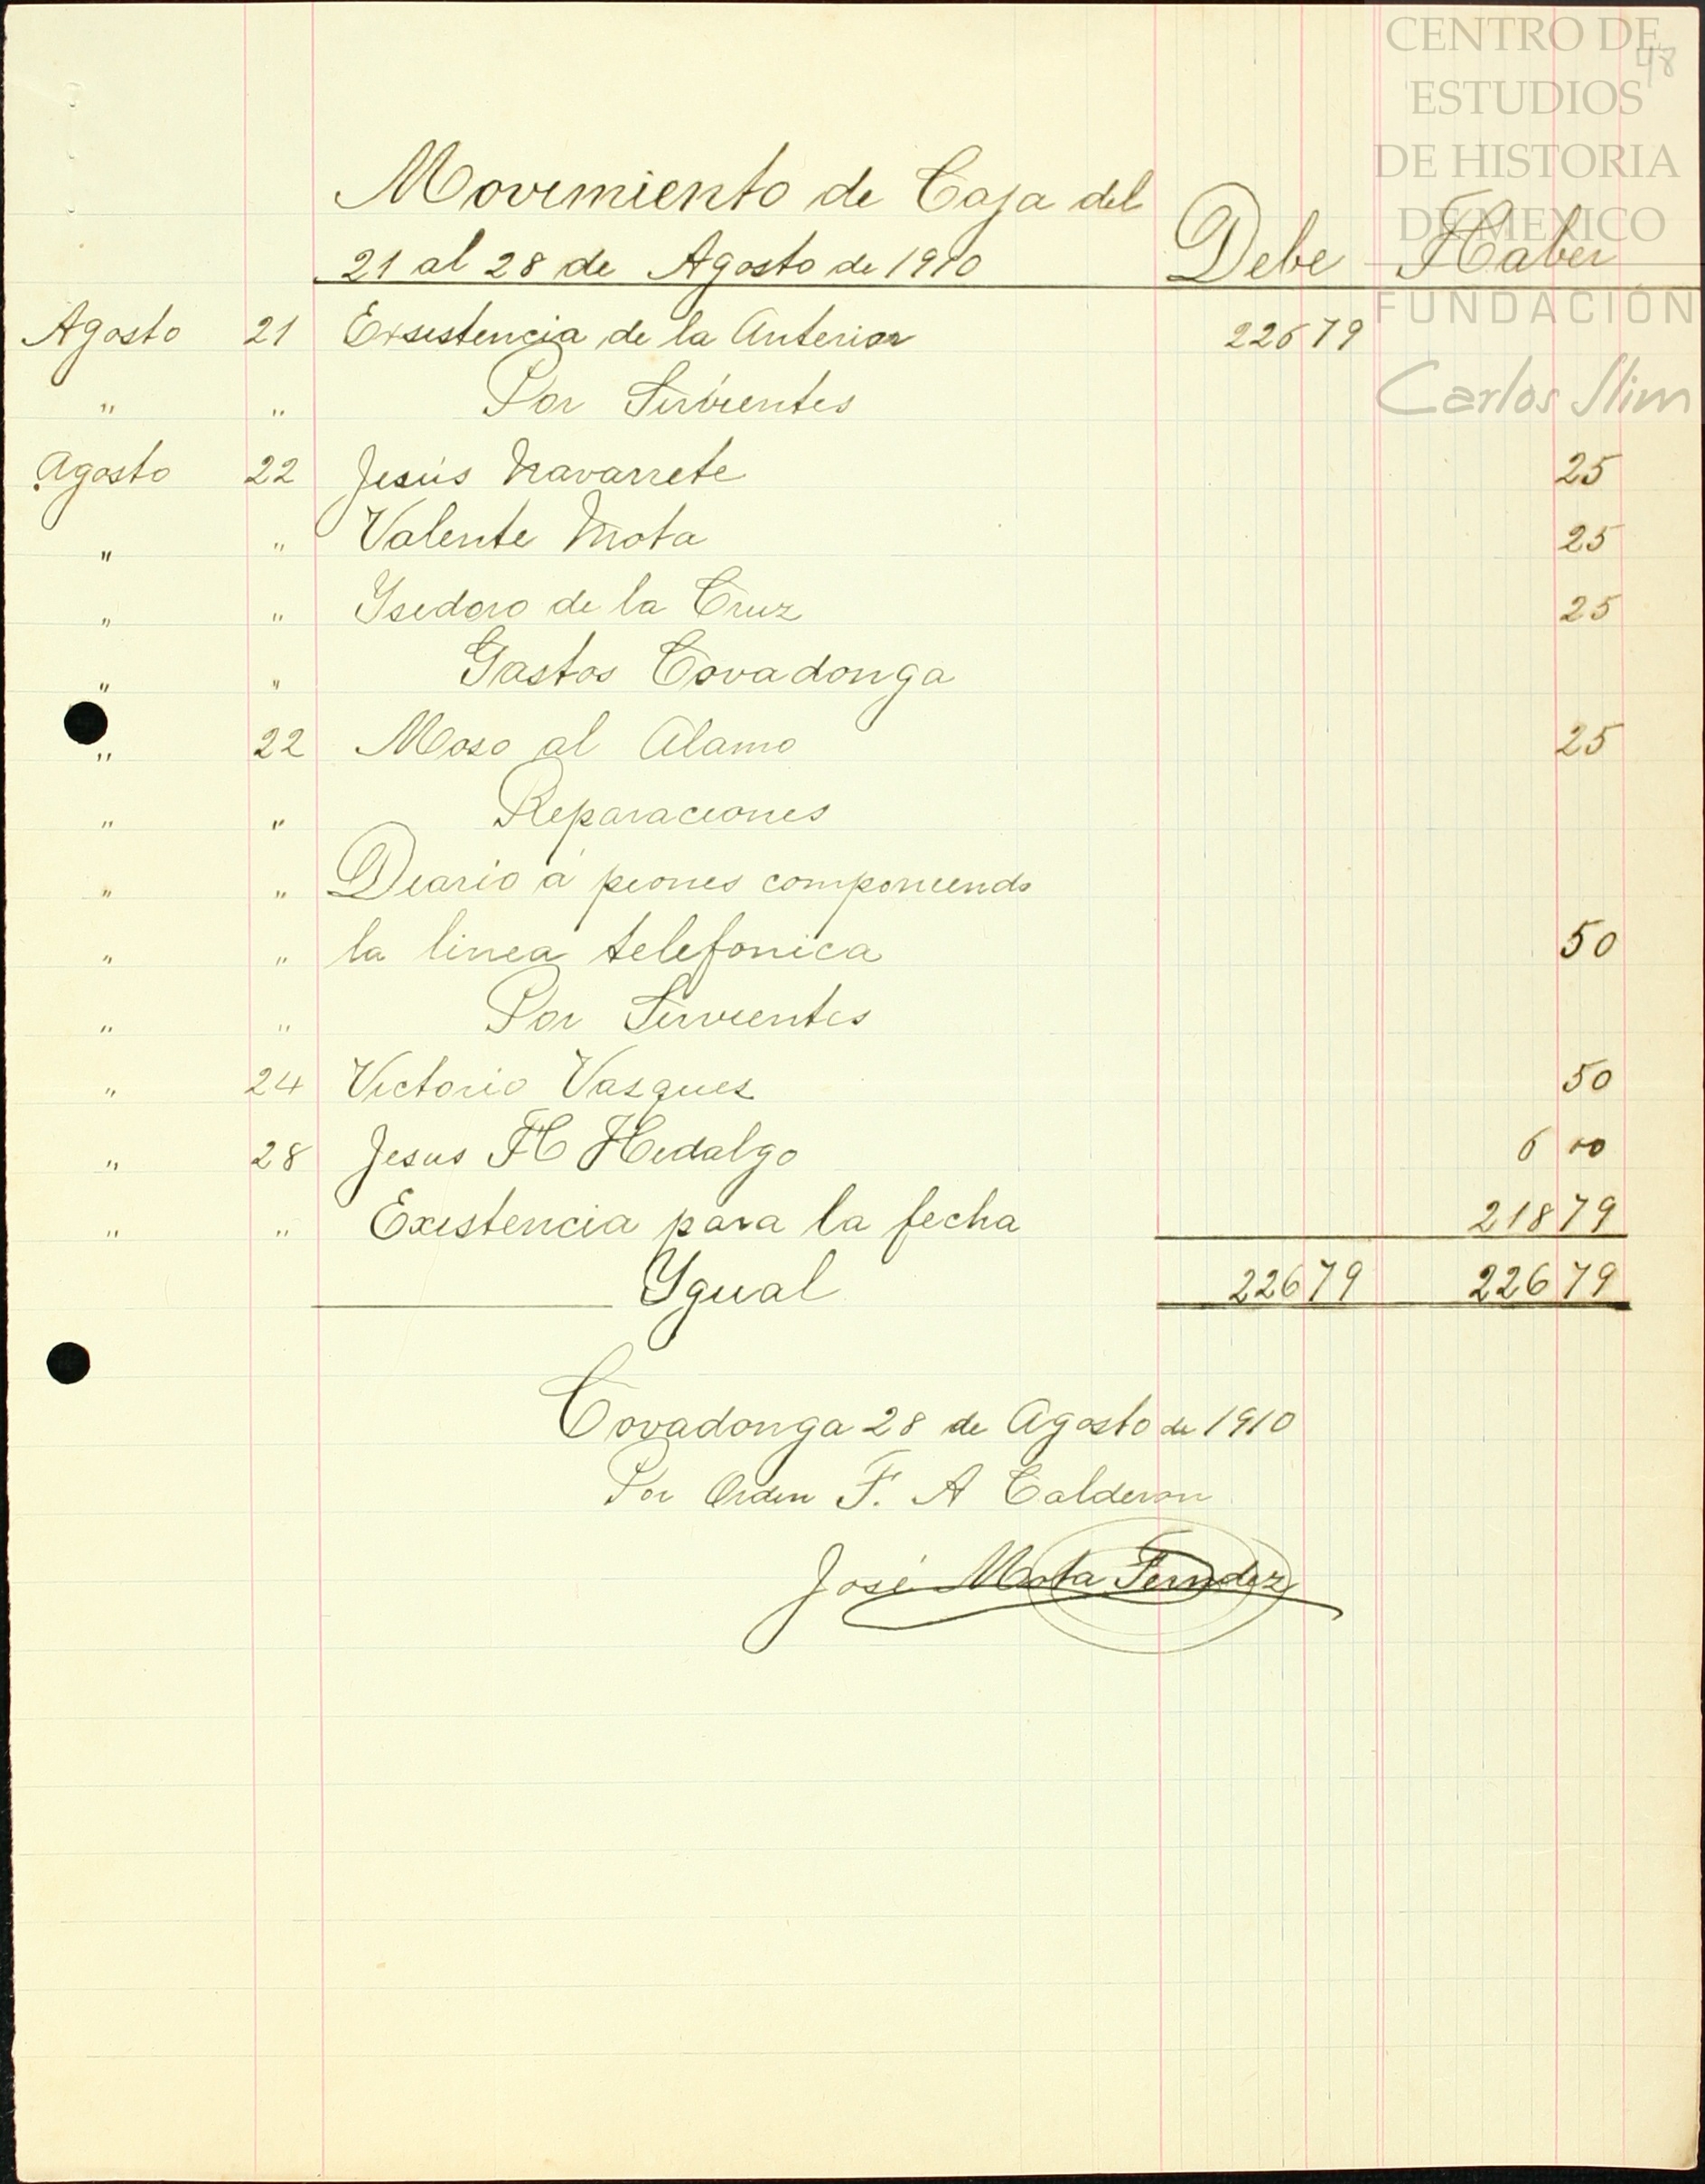 CENTRO DE
ESTUDIOS
DE HISTORIA
DE MEXICO
FUNDACIÓN
Carlos Slim
48
Movimiento de Caja del
21 al 28 de Agosto de 1910 Debe Haber
Agosto 21 Exsistencia de la Anterior 226 79
" " Por Sirvientes
Agosto 22 Jesús Navarrete 25
" " Valente Mota 25
" " Ysidoro de la Cruz 25
" " Gastos Covadonga
" 22 Moso al Alamo 25
" " Reparaciones
" " Diario á peones componiendo
" " la linea telefonica 50
" " Por Sirvientes
" 24 Victorio Vasques 50
" 28 Jesus H Hidalgo 6 00
" " Existencia para la fecha 218 79
Ygual 226 79 226 79
Covadonga 28 de Agosto de 1910
Por Orden F. A Calderon
José Mota Ferndez